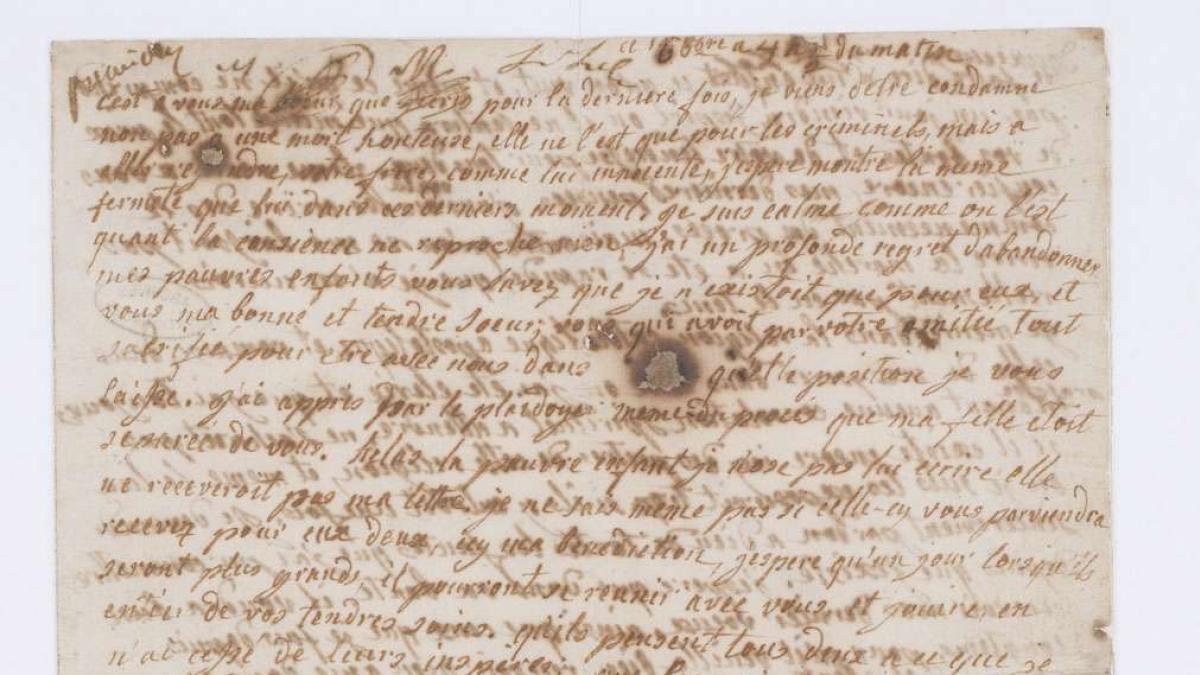 ce 16 8bre a 4 h ½ du matin
c'est a vous ma soeur, que j'ecris pour la derniere fois, je viens d'etre condamné
non pas a une mort honteuse, elle ne l'est que pour les criminels, mais a
aller rejoindre votre frere, comme lui innocente, j'espere montré la meme
fermeté que lui dans ces derniers moment. je suis calme comme on l'est
quant la consience ne reproche rien, j'ai un profonde regret d'abandonner
mes pauvres enfants vous savez que je n'existoit que pour eux, et
vous ma bonne et tendre soeur, vous qui avoit par votre amitié tout
sacrifié pour etre avec nous dans quelle position je vous
laisse. j'ai appris par le plaidoyer meme du procés que ma fille etoit
separeé de vous. helas la pauvre enfant je n'ose pas lui ecrire elle
ne receveroit pas ma lettre. je ne sais meme pas si celle-cy vous parviendra
recevez pour eux deux icy ma bénédiction, j'espere qu'un jour lorsqu'ils
seront plus grands, il pourront se reunir avec vous, et jouire en
entier de vos tendres soins. qu'ils pensent tous deux a ce que je
n'ai cessé de leurs inspirer